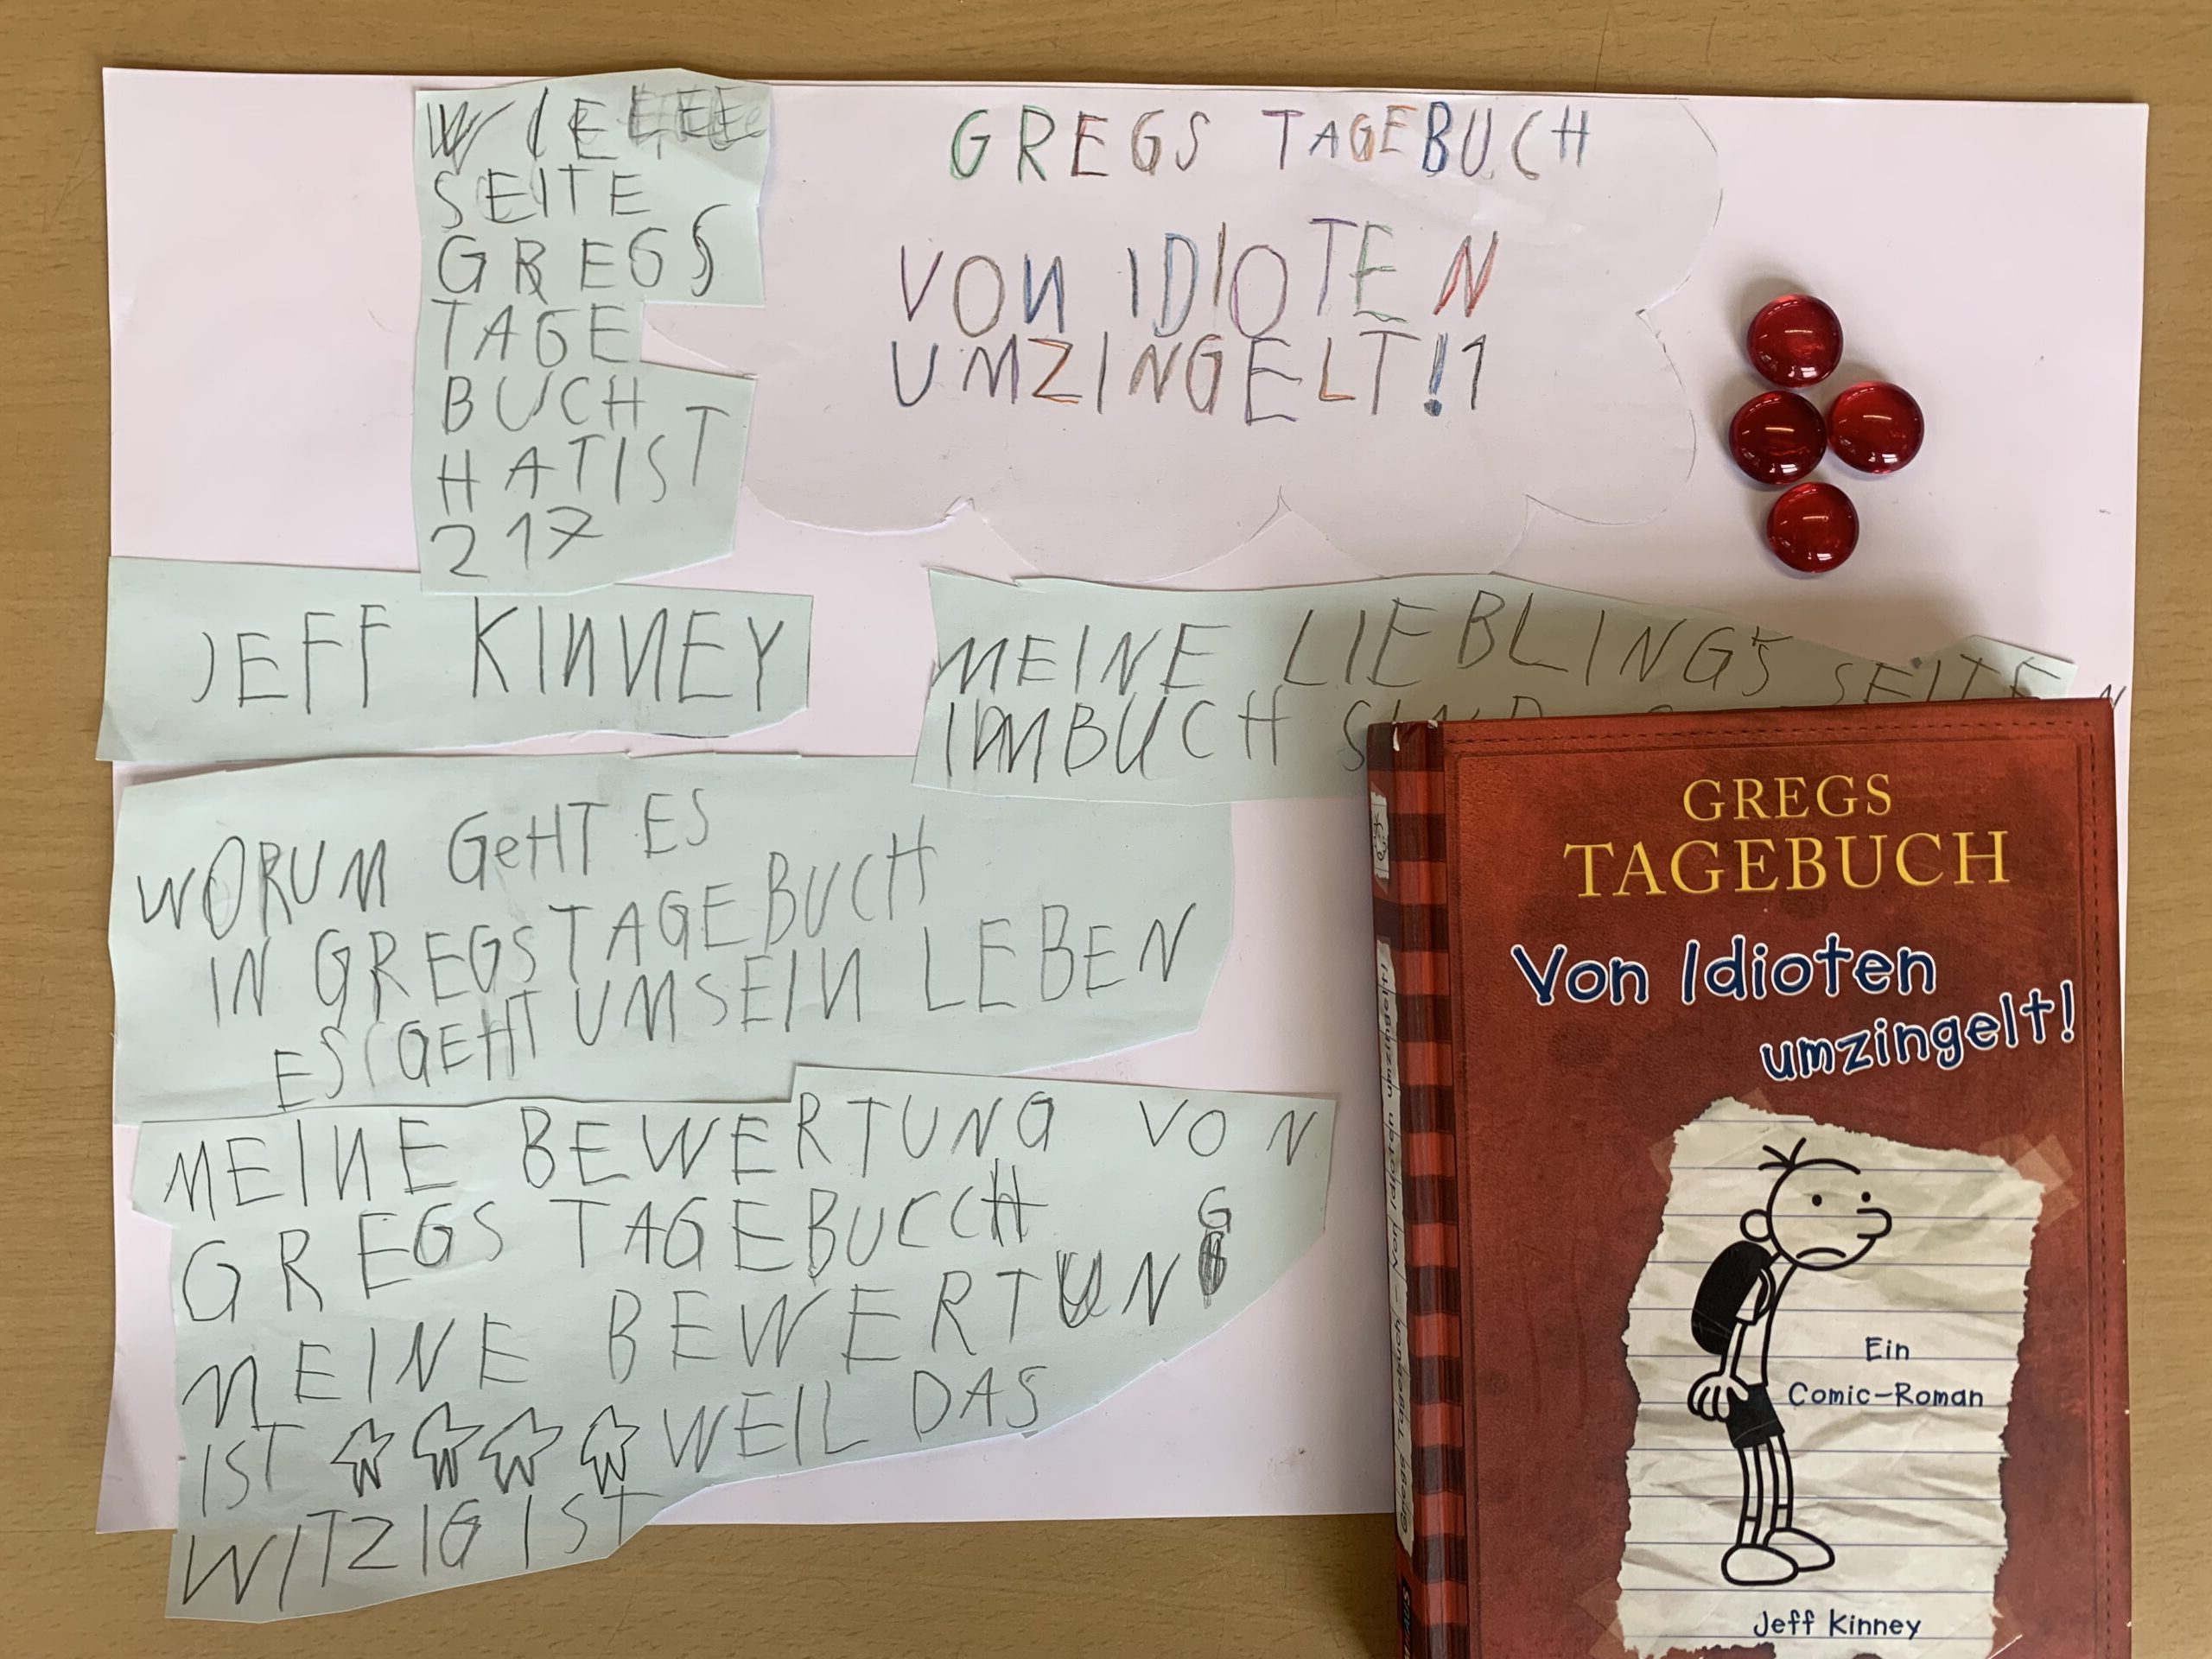 GREGS TAGEBUCH
VON IDIOTEN
UMZINGELT!1
WIE
SEITE
GREGS
TAGE
BUCH
HATIST
217
JEFF KINNEY
MEINE LIEBLINGS SEITEN
IMBUCH SIND
WORUM GeHT ES
IN GREGS TAGEBUCH
ES GEHT UMSEIN LEBEN
MEINE BEWERTUNG VON
GREGS TAGEBUCCH
MEINE BEWERTUNG
IST WEIL DAS
WITZIG IST
GREGS
TAGEBUCH
Von Idioten
umzingelt!
Ein
Comic-Roman
Jeff Kinney
Gregs Tagebuch - Von Idioten umzingelt!